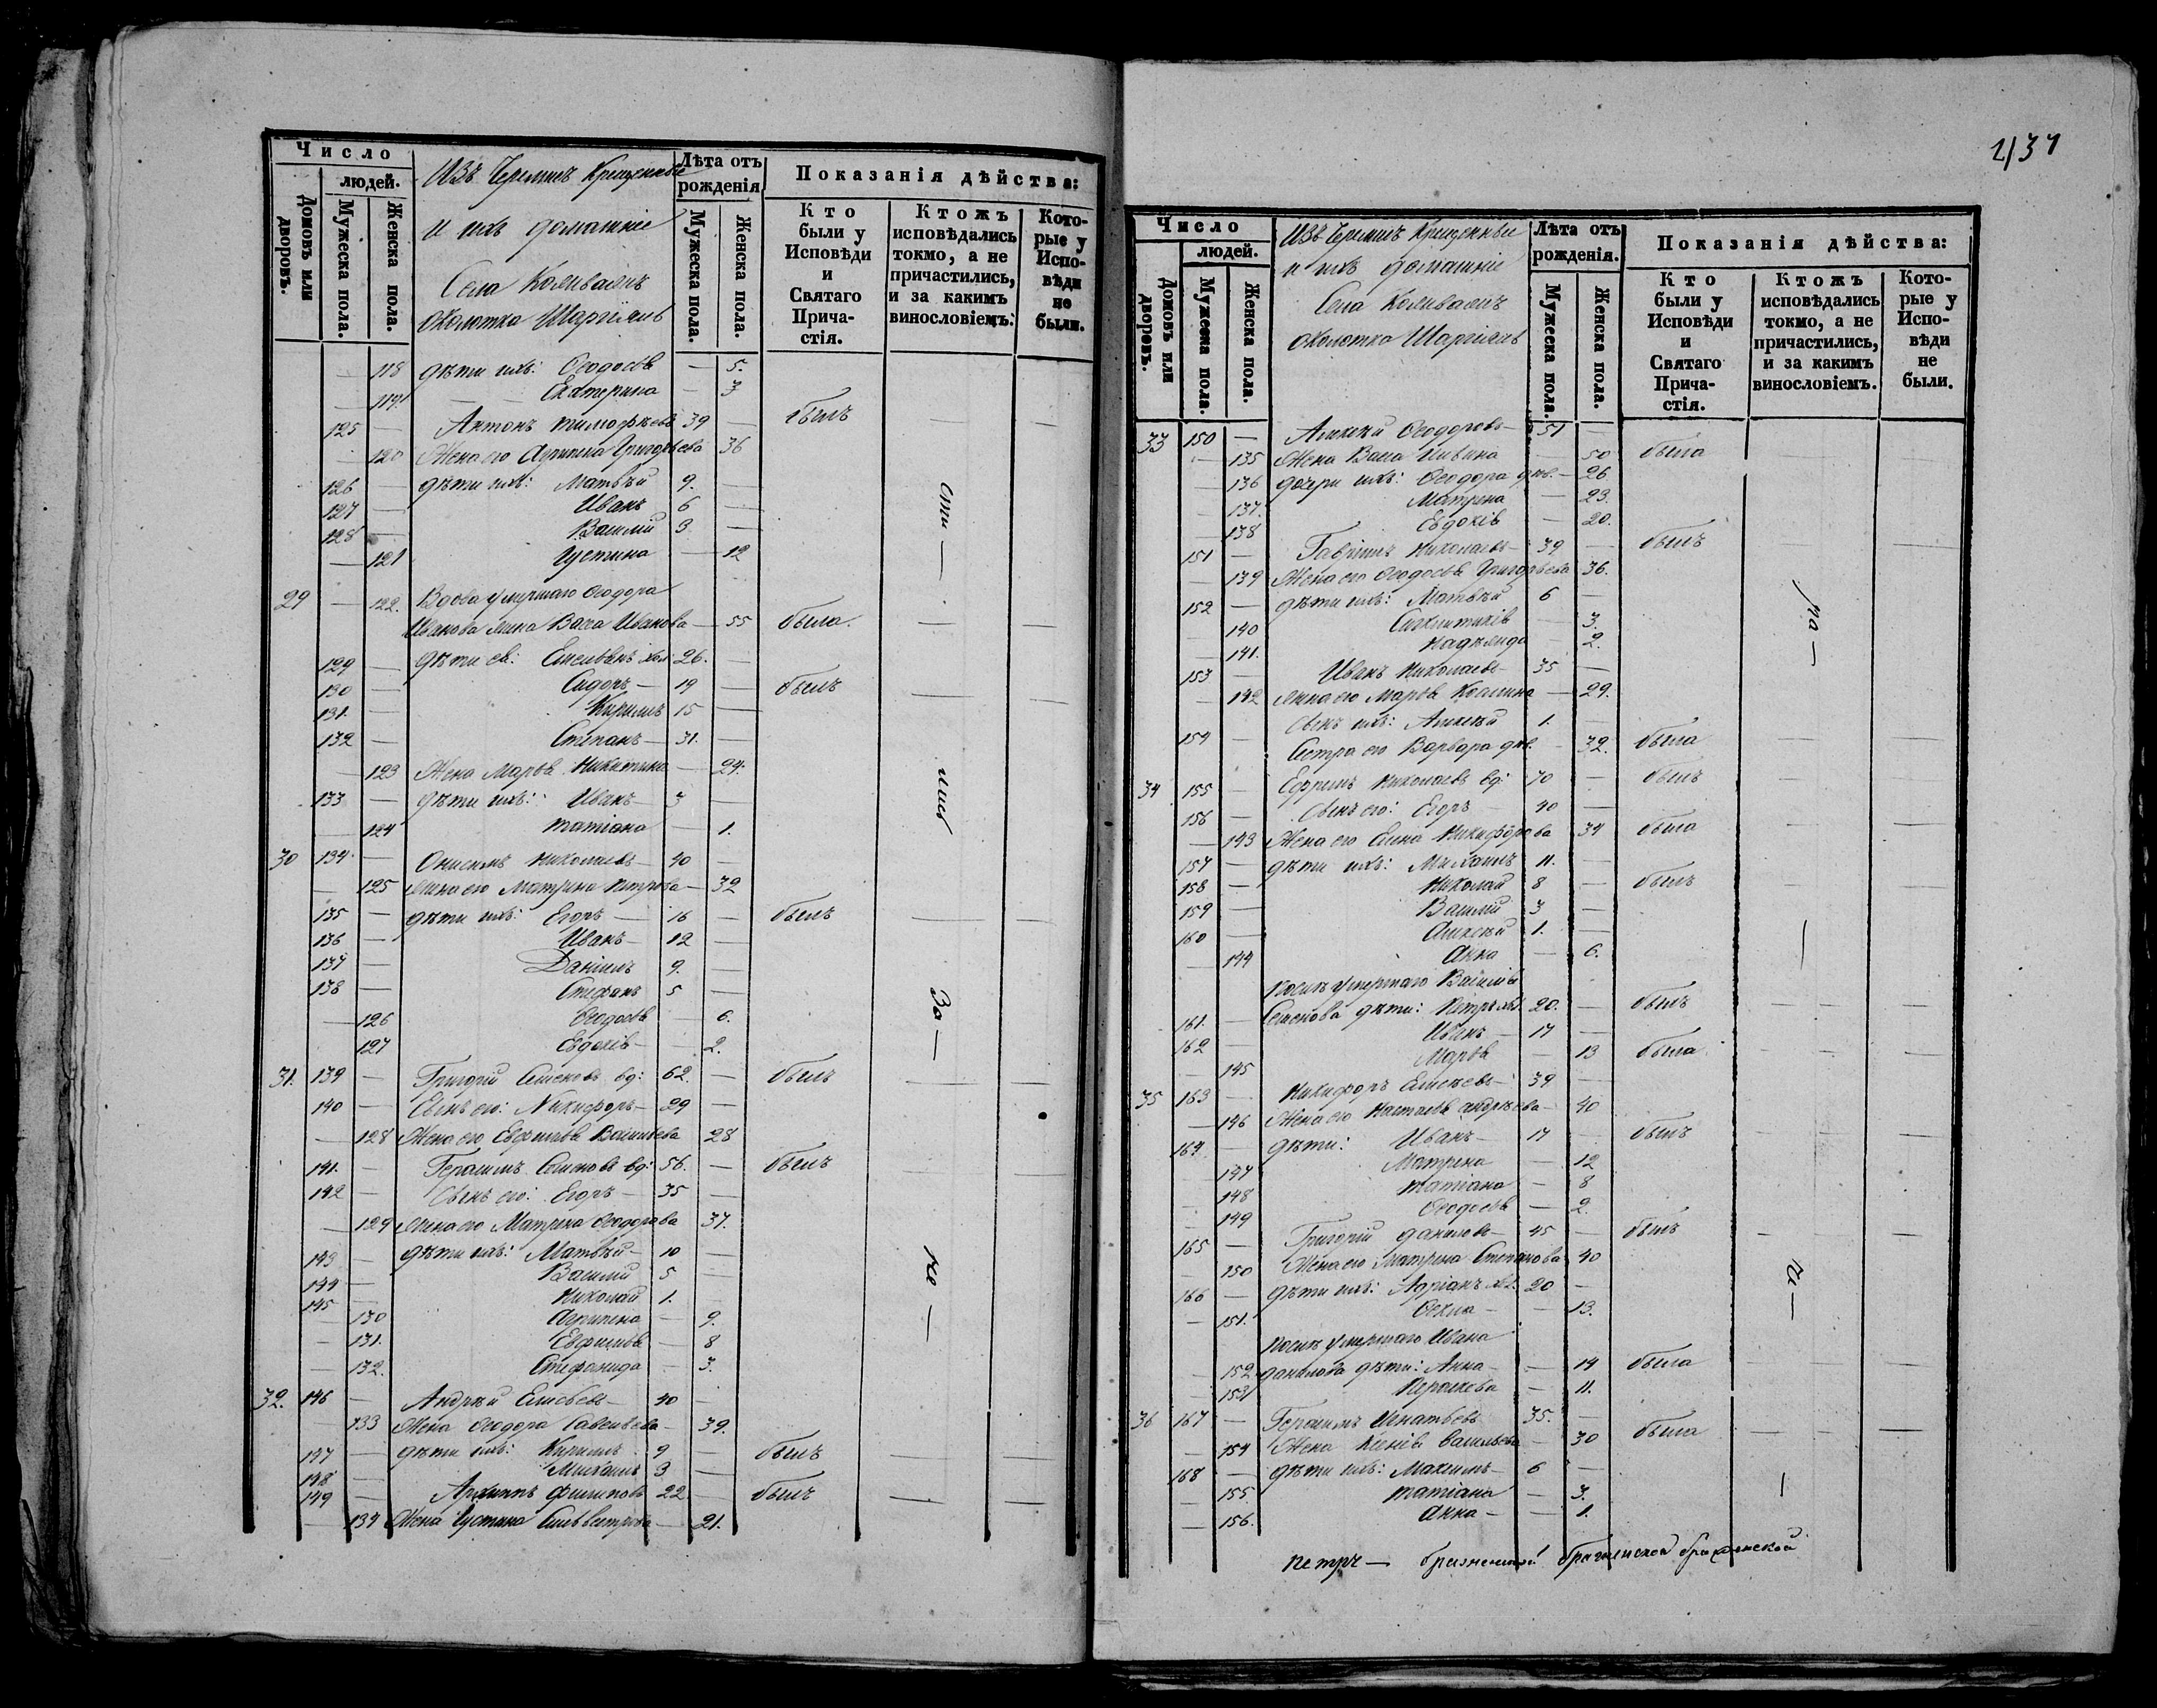 Число
людей.
Домовъ или дворовъ.
Мужеска пола.
Женска пола.
Изъ Черемисъ Крещенные
и ихъ домашніе
Села
околотка
Лѣта отъ рожденія
Мужеска пола.
Женска пола.
Показанія дѣйства:
Кто были у Исповѣди и Святаго Причастія.
Ктожъ исповѣдались токмо, а не причастились, и за какимъ винословіемъ:
Которые у Исповѣди не были.
118 дѣти ихъ: Ѳеодосья — 5.
119. Екатерина — 3
125 — Антонъ Тимофѣевъ 39 — былъ
120 Жена его Григорьева 36
126 — дѣти ихъ: Матвѣй 9. —
127 — Иванъ 6 —
128 — Василий 3 —
— 121 Устина — 12
29 — 122. Вдова умершаго Ѳеодора
Иванова жена Васса Иванова — 55 была.
129 — дѣти ея: Емельянъ хол: 26. —
130 — Сидоръ — 19 — былъ
131. — Кирилъ 15 —
132 — Степанъ — 31. —
— 123 Жена Марья Никитина — 24.
133 — дѣти ихъ: Иванъ — 3 —
— 124 Татіана — 1.
30 134. — Онисимъ Николаевъ — 40 —
— 125 жена его Матрена Петрова — 32
135 — дѣти ихъ: Егоръ — 16 — былъ
136 — Иванъ — 12 —
137 — Даніилъ 9. —
138 — Стефанъ 5 —
— 126 Ѳеодосья — 6.
127 Евдокія — 2.
31. 139 — Григорій Семеновъ вд: 62. — былъ
140 — Сынъ его: Никифоръ — 29 —
— 128 Жена его Евфимья Васильева 28
141. — Герасимъ Семеновъ вд: 56. — былъ
142 — Сынъ его: Егоръ — 35 —
— 129 жена его Матрена Ѳеодорова 37.
143 — дѣти ихъ: Матвѣй — 10 —
144 — Василий 5 —
145 — Николай 1. —
— 130 Агрипена — 9.
— 131. Евфимья — 8
— 132. Стефанида — 3.
32. 146 — Андрей 40 —
— 133 Жена Ѳеодора 39.
147 — дѣти ихъ: Кирилъ 9 — былъ
148 — Михаилъ 3 —
149 — Филиповъ 22 — былъ
— 134 Жена Устина Сильвестрова — 21.
437
Число
людей.
Домовъ или дворовъ.
Мужеска пола.
Женска пола.
Изъ Черемисъ Крещенные
и ихъ домашніе
Села
околотка
Лѣта отъ рожденія.
Мужеска пола.
Женска пола.
Показанія дѣйства:
Кто были у Исповѣди и Святаго Причастія.
Ктожъ исповѣдались токмо, а не причастились, и за какимъ винословіемъ.
Которые у Исповѣди не были.
33 150 — Алексѣй Ѳеодоровъ — 51 —
— 135 Жена Васса — 50 была
136 дочери ихъ: Ѳеодора дѣв. — 26
— 137. Матрена — 23.
— 138 Евдокія — 20.
151 — Николаевъ — 39 — былъ
— 139 Жена его Ѳеодосья Григорьева 36.
152 — дѣти ихъ: Матвѣй 6 —
140 — 3.
— 141. — 2.
153 — Иванъ Николаевъ — 35 —
— 142 жена его Марья — 29.
154 — Сынъ ихъ: Алексѣй 1. —
Сестра его Варвара дѣв. — 32. была
34 155 — Ефремъ Николаевъ вд: 70 — былъ
156 — Сынъ его: Егоръ 40 —
— 143 Жена его Елена Никифорова 34 была
157 — дѣти ихъ: Михаилъ 11. —
158 — Николай 8 — былъ
159 — Василий 3 —
160 — Алексѣй 1. —
— 144 Анна — 6.
Послѣ умершаго Василія
161. — Семенова дѣти: Петръ хол. 20. — былъ
162 — Иванъ — 17 —
— 145 Марья — 13 была
35 163 — Никифоръ — 39 —
— 146 Жена его Настасья Андрѣева — 40
164 — дѣти: Иванъ — 17 — былъ
— 147 Матрена — 12
— 148 Татіана — 8
— 149 Ѳеодосья — 2.
165 — Григорій Даниловъ — 45 — былъ
— 150 Жена его Матрена Степанова 40
166 — дѣти ихъ: Адріанъ хол. 20 —
— 151. — 13.
Послѣ умершаго Ивана
— 152 Данилова дѣти: Анна — 14 была
— 153 — 11.
36 167 — Герасимъ Игнатьевъ 35. —
— 154 Жена Ксенія Васильева — 30 была
168 — дѣти ихъ: Максимъ — 6 —
— 155 Татіана — 3.
— 156. Анна — 1.
Петръ —